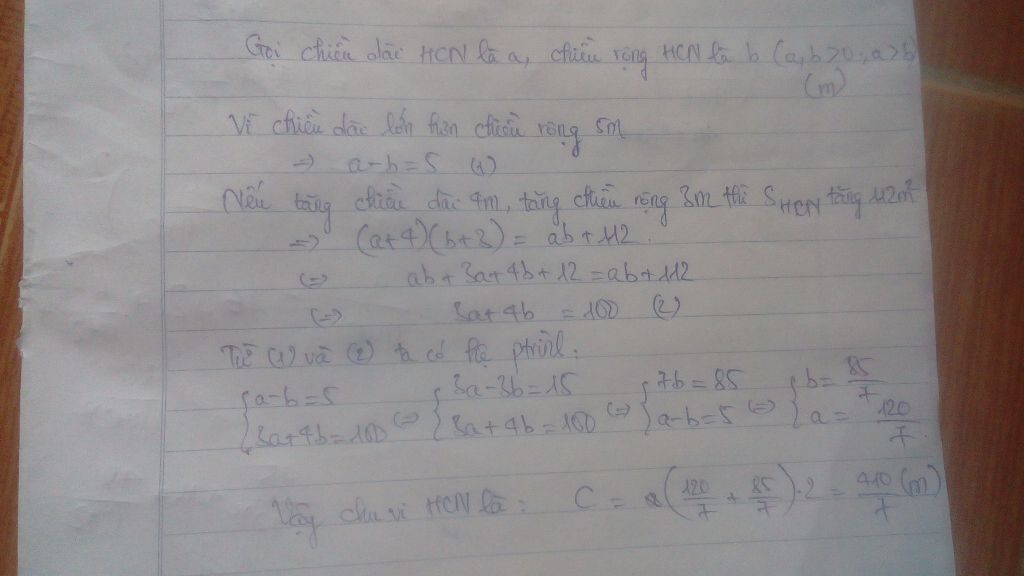 Gọi chiều dài HCN là a, chiều rộng HCN là b (a,b>0; a>b)
(m)
Vì chiều dài lớn hơn chiều rộng 5m
=> a-b=5 (1)
Nếu tăng chiều dài 4m, tăng chiều rộng 3m thì S HCN tăng 112m²
=> (a+4)(b+3) = ab+112.
(=) ab+3a+4b+12=ab+112
(=) 3a+4b = 100 (2)
Từ (1) và (2) ta có hệ ptrình:
{a-b=5 {3a-3b=15 {7b=85 {b=85/7
{3a+4b=100 (=) {3a+4b=100 (=) {a-b=5 (=) {a=120/7.
Vậy chu vi HCN là: C = (120/7 + 85/7).2 = 410/7 (m)